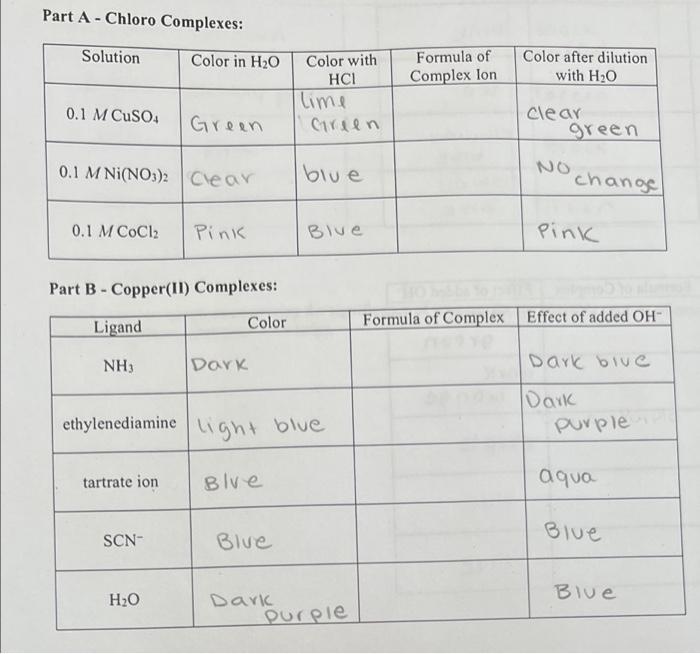 Part A - Chloro Complexes:
Solution
Color in H₂O
Color with HCl
Formula of Complex Ion
Color after dilution with H₂O
0.1 M CuSO₄
Green
lime Green
clear green
0.1 M Ni(NO₃)₂
Clear
blue
No change
0.1 M CoCl₂
Pink
Blue
Pink
Part B - Copper(II) Complexes:
Ligand
Color
Formula of Complex
Effect of added OH⁻
NH₃
Dark
Dark blue
ethylenediamine
light blue
Dark purple
tartrate ion
Blue
aqua
SCN⁻
Blue
Blue
H₂O
Dark purple
Blue